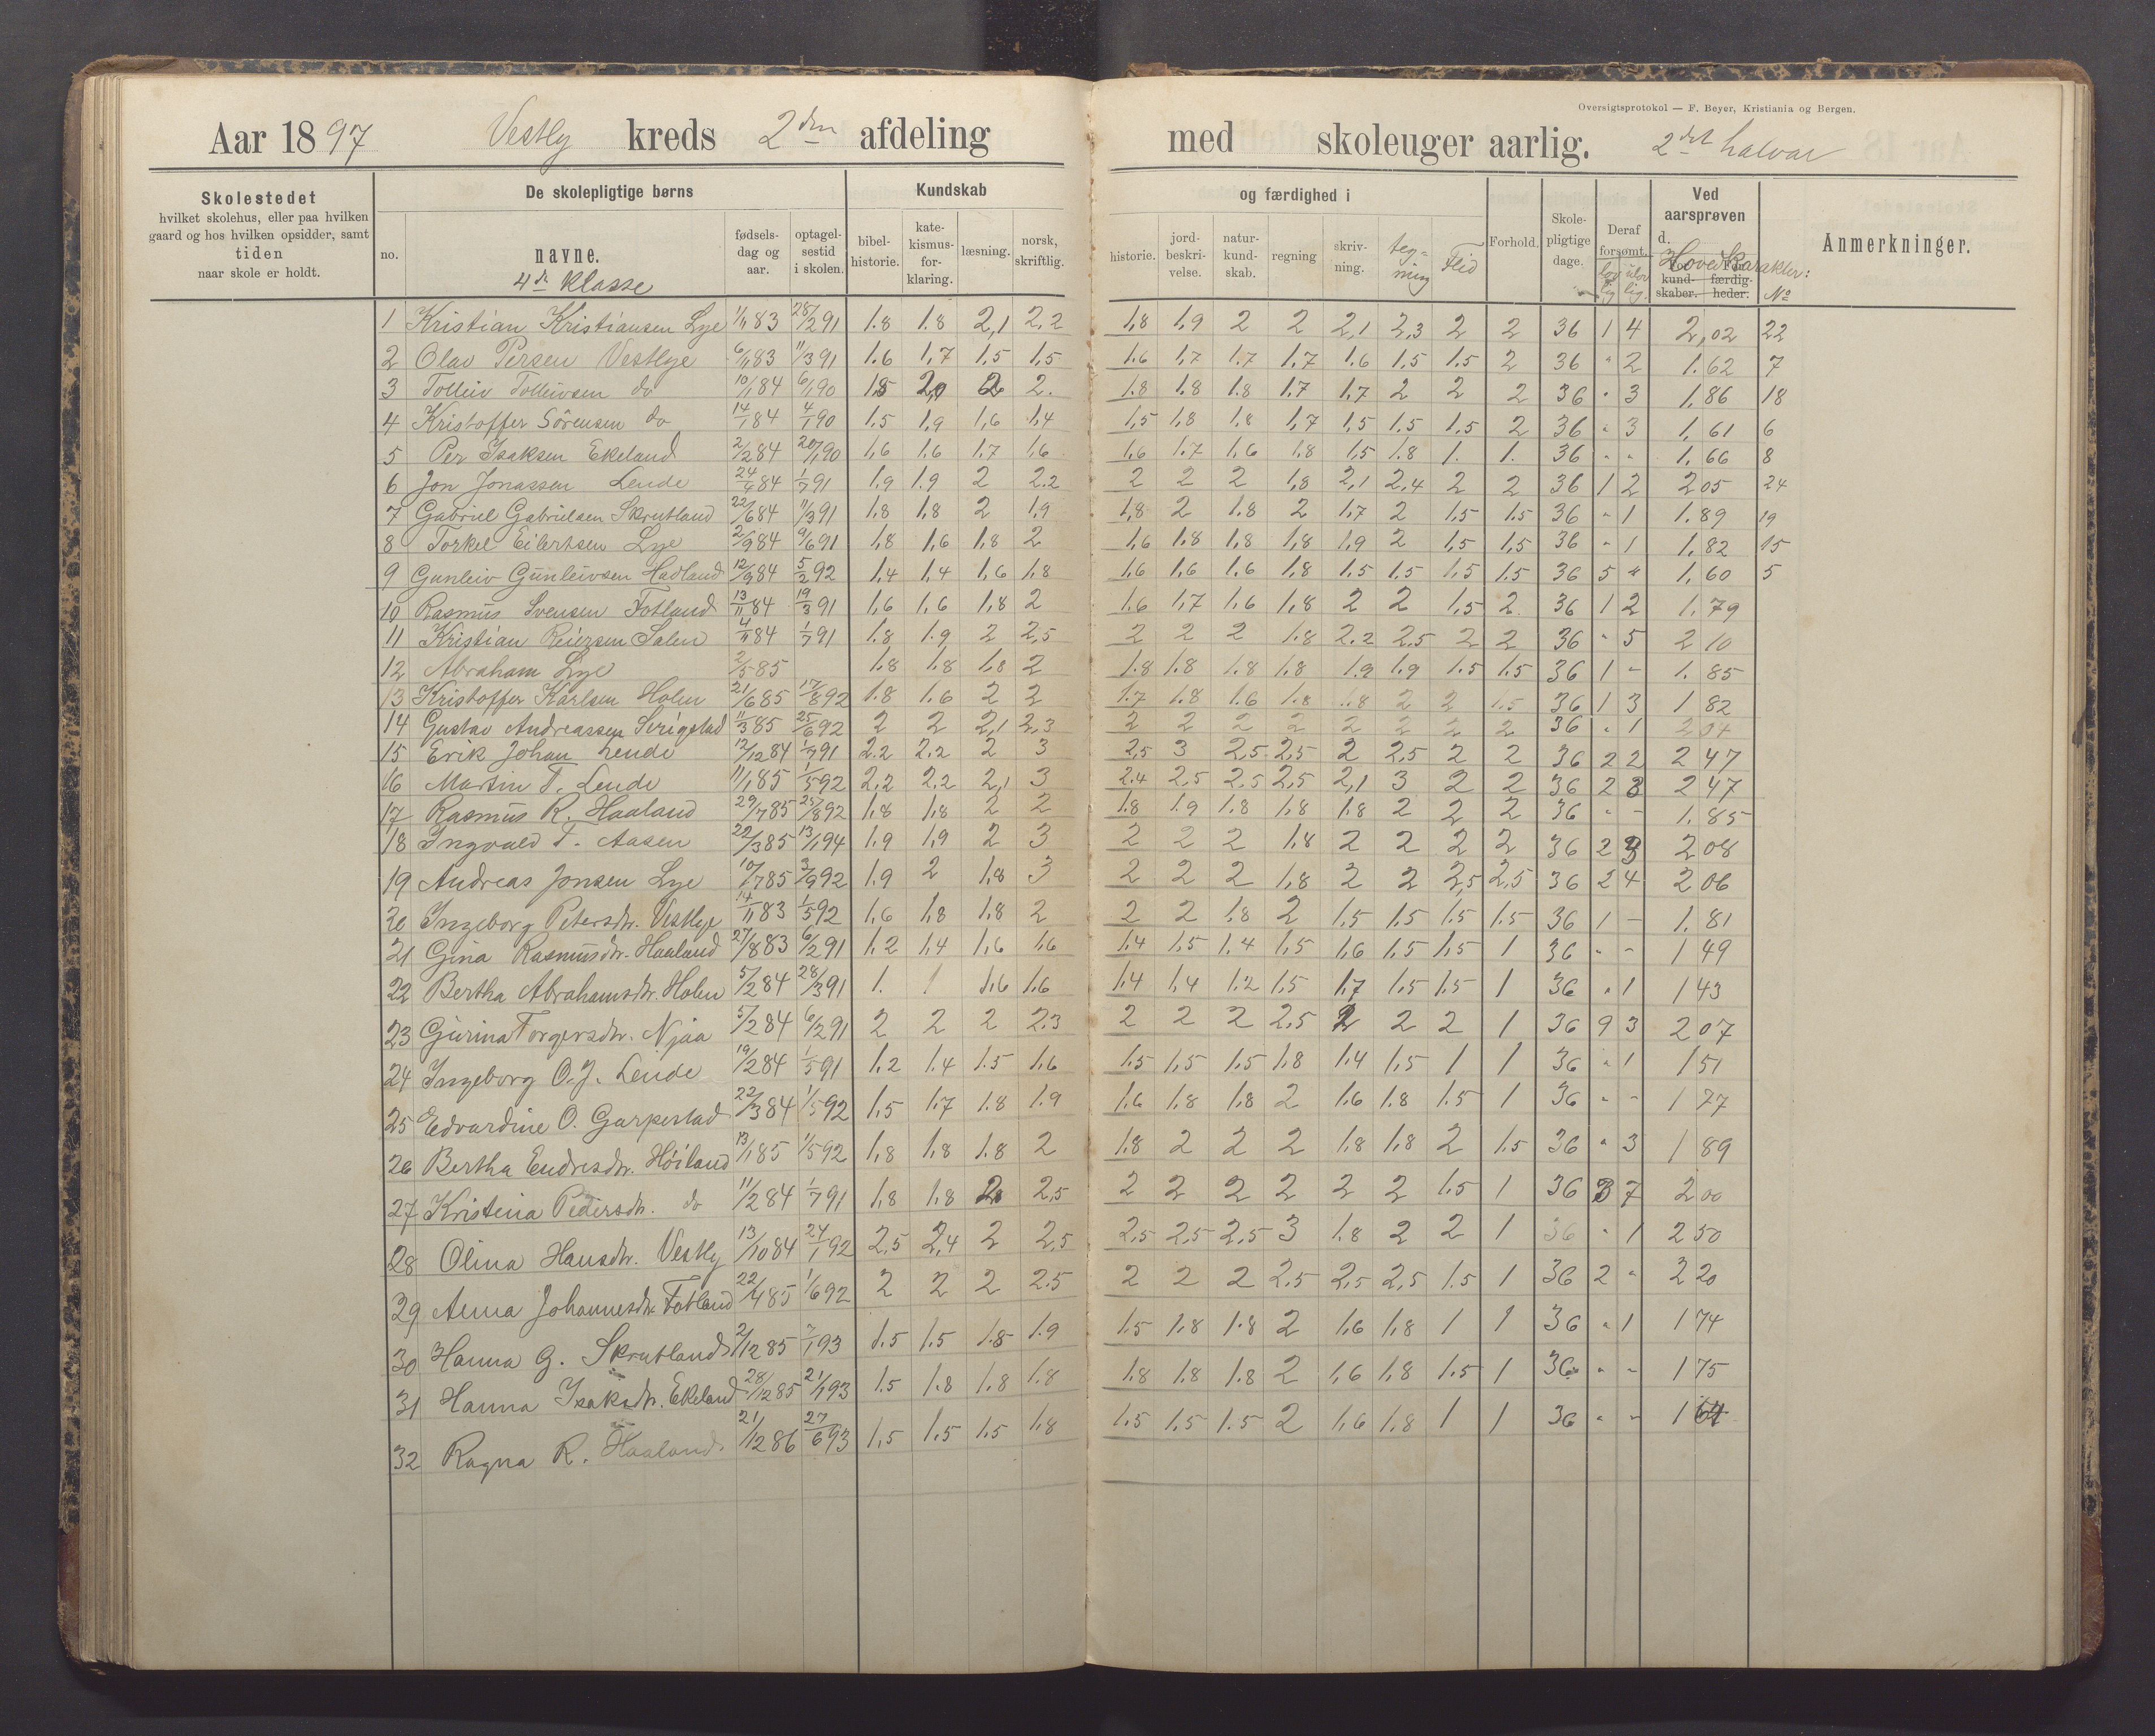 Oversigtsprotokol — F. Beyer, Kristiania og Bergen.
Aar 1897 Vestly kreds 2den afdeling med skoleuger aarlig. 2det halvar
Skolestedet
hvilket skolehus, eller paa hvilken
gaard og hos hvilken opsidder, samt
tiden
naar skole er holdt.
De skolepligtige børns
no. navne. fødsels-dag og aar. optagel-sestid i skolen.
4de Klasse
Kundskab og færdighed i
bibel-historie. kate-kismus-for-klaring. læsning. norsk, skriftlig. historie. jord-beskri-velse. natur-kund-skab. regning skriv-ning. teg-ning Flid
Forhold. Skole-pligtige dage. Deraf forsømt. lov lig ulov lig. Ved aarsprøven d. Hovedkarakter: kund-skaber. færdig-heder. No
Anmerkninger.
1 Kristian Kristiansen Lye 1/1 83 28/2 91 1.8 1.8 2,1 2,2 1,8 1,9 2 2 2,1 2,3 2 2 36 1 4 2,02 22
2 Olav Persen Vestlye 6/1 83 11/3 91 1.6 1,7 1,5 1,5 1.6 1,7 1.7 1,7 1.6 1,5 1.5 2 36 " 2 1.62 7
3 Tolleiv Tolleivsen do 10/1 84 6/1 90 1,5 2,0 2 2. 1.8 1.8 1.8 1.7 1,7 2 2 2 36 " 3 1,86 18
4 Kristoffer Sörensen do 14/1 84 4/1 90 1.5 1,9 1,6 1,4 1,5 1,8 1,8 1,7 1,5 1.5 1,5 2 36 " 3 1,61 6
5 Per Isaksen Ekeland 2/2 84 20/1 90 1,6 1.6 1.7 1,6 1,6 1.7 1,6 1.8 1,5 1.8 1. 1. 36 " " 1,66 8
6 Jon Jonassen Lende 24/4 84 1/7 91 1.9 1.9 2 2.2 2 2 2 1,8 2,1 2,4 2 2 36 1 2 2 05 24
7 Gabriel Gabrielsen Skrutland 22/6 84 11/3 91 1.8 1,8 2 1,9 1,8 2 1.8 2 1.7 2 1,5 1.5 36 " 1 1.89 19
8 Torkel Eilertsen Lye 2/9 84 9/6 91 1,8 1,6 1,8 2 1,6 1.8 1,8 1,8 1,9 2 1,5 1,5 36 " 1 1,82 15
9 Gunleiv Gunleivsen Hadland 12/9 84 5/2 92 1,4 1,4 1,6 1,8 1.6 1,6 1.6 1,8 1.5 1.5 1,5 1.5 36 5 " 1,60 5
10 Rasmus Svensen Fotland 13/11 84 19/3 91 1,6 1,6 1,8 2 1.6 1,7 1,6 1,8 2 2 1,5 2 36 1 2 1,79
11 Kristian Reiersen Salen 4/11 84 1/7 91 1.8 1.9 2 2,5 2 2 2 1.8 2.2 2,5 2 2 36 " 5 2 10
12 Abraham Lye 2/5 85 1.8 1,8 1,8 2 1.8 1.8 1.8 1.8 1.9 1,9 1.5 1.5 36 1 - 1.85
13 Kristoffer Karlsen Holen 21/6 85 17/8 92 1.8 1.6 2 2 1.7 1,8 1.6 1.8 1.8 2 2 1.5 36 1 3 1 82
14 Gustav Andreassen Serigstad 11/3 85 25/6 92 2 2 2,1 2,3 2 2 2 2 2 2 2 2 36 " 1 2 04
15 Erik Johan Lende 12/12 84 1/7 91 2.2 2.2 2 3 2,5 3 2,5 2,5 2 2,5 2 2 36 2 2 2 47
16 Martin T. Lende 11/1 85 1/5 92 2,2 2,2 2,1 3 2.4 2,5 2,5 2,5 2,1 3 2 2 36 2 3 2 47
17 Rasmus R. Haaland 29/7 85 25/8 92 1,8 1,8 2 2 1.8 1.9 1.8 1,8 1.8 2 2 2 36 " - 1.85
18 Ingvald T. Aasen 22/3 85 13/1 94 1.9 1,9 2 3 2 2 2 1,8 2 2 2 2 36 2 3 2 08
19 Andreas Jonsen Lye 10/7 85 3/9 92 1.9 2 1,8 3 2 2 2 1,8 2 2 2,5 2,5 36 2 4 2 06
20 Ingeborg Petersdtr. Vestlye 14/11 83 1/5 92 1,6 1,8 1,8 2 2 2 1.8 2 1,5 1.5 1.5 1.5 36 1 - 1.81
21 Gina Rasmusdtr. Haaland 27/8 83 6/2 91 1,2 1,4 1,6 1,6 1.4 1.5 1.4 1,5 1,6 1,5 1,5 1 36 " - 1 49
22 Bertha Abrahamsdtr. Holen 5/2 84 28/3 91 1. 1 1,6 1,6 1,4 1,4 1.2 1,5 1,7 1,5 1.5 1 36 " 1 1 43
23 Gurina Torgersdtr. Njaa 5/2 84 6/2 91 2 2 2 2.3 2 2 2 2,5 2 2 2 1 36 9 3 2 07
24 Ingeborg O.J. Lende 19/2 84 1/5 91 1,2 1.4 1.5 1,6 1.5 1,5 1.5 1,8 1,4 1,5 1 1 36 " 1 1 51
25 Edvardine O. Garpestad 22/3 84 1/5 92 1,5 1,7 1.8 1.9 1.6 1,8 1,8 2 1.6 1,8 1.5 1 36 " - 1 77
26 Bertha Endresdtr. Höiland 13/1 85 1/5 92 1,8 1,8 1.8 2 1.8 2 2 2 1,8 1,8 2 1,5 36 " 3 1 89
27 Kristina Pedersdtr. do 11/2 84 1/7 91 1,8 1,8 2 2,5 2 2 2 2 2 2 1.5 1 36 3 7 2 00
28 Olina Hansdtr. Vestly 13/10 84 24/1 92 2,5 2,4 2 2,5 2,5 2,5 2,5 3 1.8 2 2 1 36 " 1 2 50
29 Anna Johannesdtr. Fotland 22/4 85 1/6 92 2 2 2 2.5 2 2 2 2,5 2,5 2,5 1.5 1 36 2 " 2 20
30 Hanna G. Skrutland 2/12 85 7/1 93 1.5 1.5 1.8 1.9 1.5 1.8 1.8 2 1,6 1,8 1 1 36 " 1 1 74
31 Hanna Isaksdtr. Ekeland 28/12 85 21/1 93 1.5 1.8 1,8 1.8 1.8 1.8 1.8 2 1,6 1,8 1.5 1 36 " - 1 75
32 Ragna R. Haaland 21/12 86 27/6 93 1,5 1.5 1.5 1,8 1.5 1,5 1.5 2 1,6 1,8 1 1 36 " - 1 64